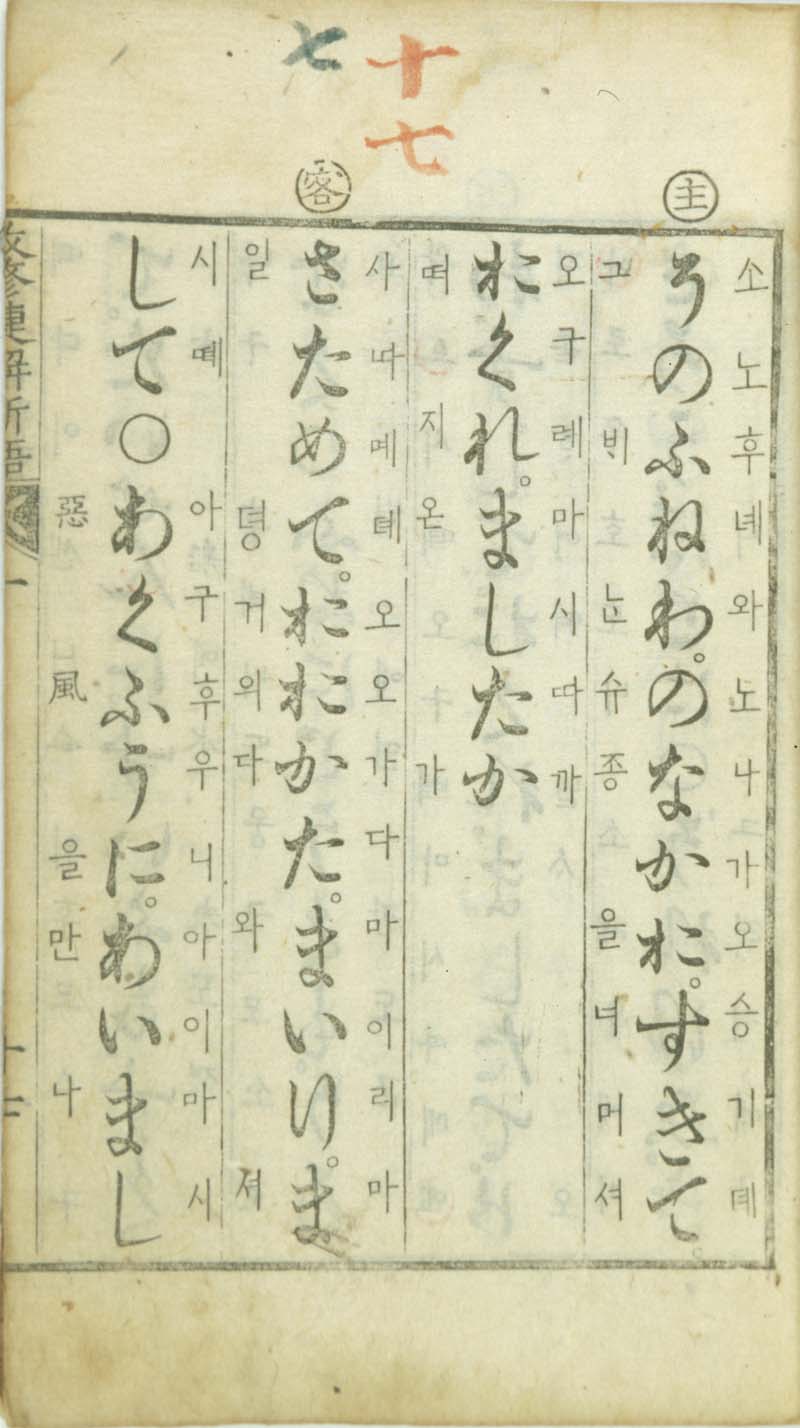 十七
七
主
そのふねわ。のなかお。すきて。
소노후녜와노나가오승기뎨
그 비 ᄂᆞᆫ 슈종 을 너머셔
おくれ。ました か
오구례마시다까
떠 지 온 가
客
さためて。おおかた。まいり。ま
사따몌뎨오오가다마이리마
일 뎡 거의 다 와 져
して○あくふうに。あいまし
시뗴 아구후우니아이마시
惡 風 을 만 나
改修捷解新語
一
十七